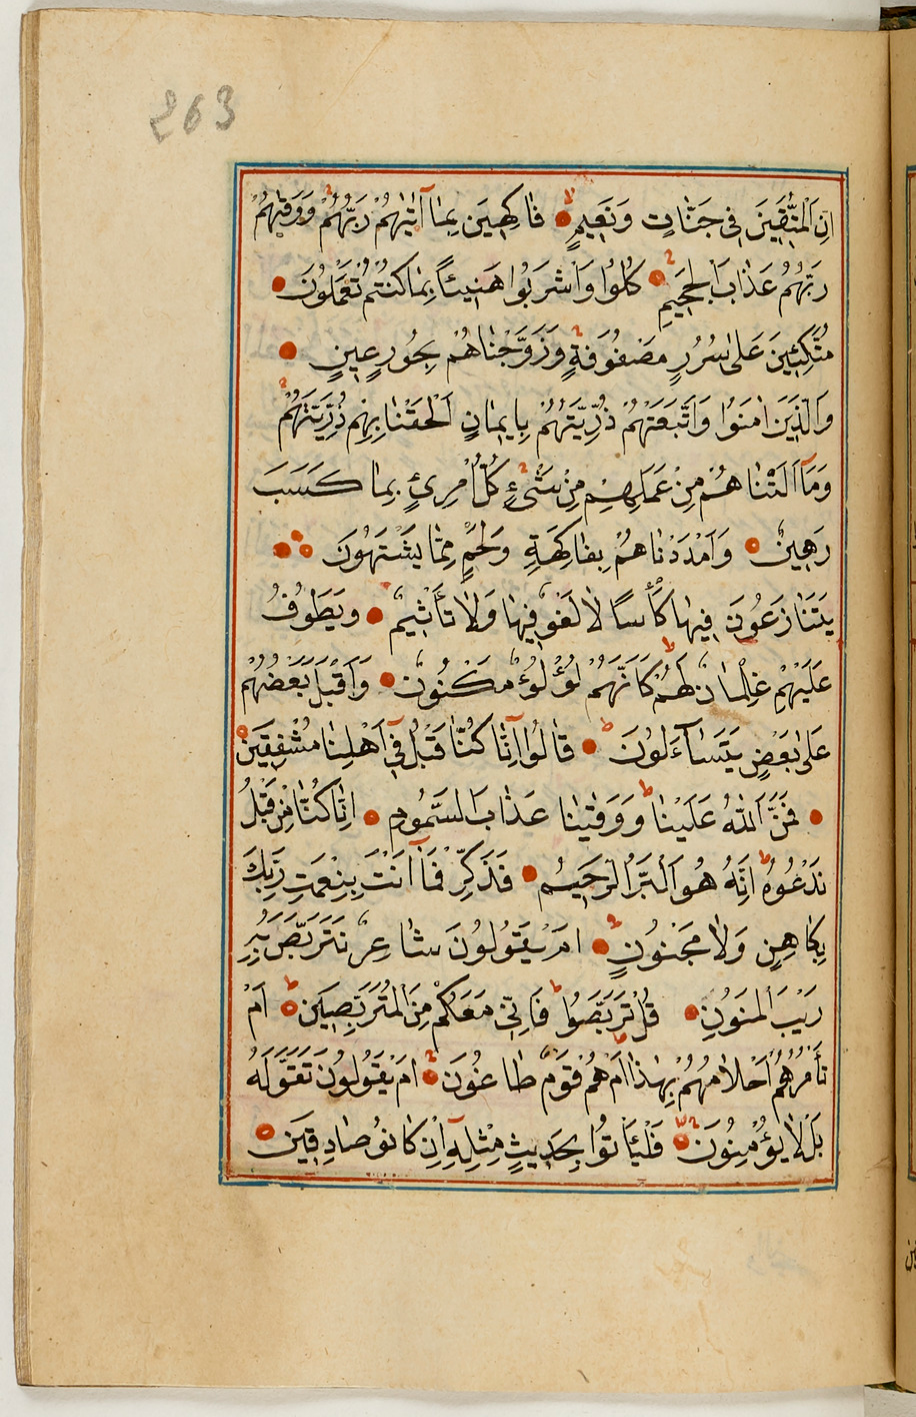 263
اِنَّ الْمُتَّقِينَ فِى جَنَّاتٍ وَنَعِيمٍ فَاكِهِينَ بِمَا اٰتٰيهُمْ رَبُّهُمْ وَوَقٰيهُمْ
رَبُّهُمْ عَذَابَ الْجَحِيمِ كُلُوا وَاشْرَبُوا هَنِيئاً بِمَا كُنْتُمْ تَعْمَلُونَ
مُتَّكِئِينَ عَلٰى سُرُرٍ مَصْفُوفَةٍ وَزَوَّجْنَاهُمْ بِحُورٍ عِينٍ
وَالَّذِينَ اٰمَنُوا وَاتَّبَعَتْهُمْ ذُرِّيَّتُهُمْ بِاِيمَانٍ اَلْحَقْنَا بِهِمْ ذُرِّيَّتَهُمْ
وَمَآ اَلَتْنَاهُمْ مِنْ عَمَلِهِمْ مِنْ شَىْءٍ كُلُّ امْرِئٍ بِمَا كَسَبَ
رَهِينٌ وَاَمْدَدْنَاهُمْ بِفَاكِهَةٍ وَلَحْمٍ مِمَّا يَشْتَهُونَ
يَتَنَازَعُونَ فِيهَا كَأْسًا لَا لَغْوٌ فِيهَا وَلَا تَأْثِيمٌ وَيَطُوفُ
عَلَيْهِمْ غِلْمَانٌ لَهُمْ كَاَنَّهُمْ لُؤْلُؤٌ مَكْنُونٌ وَاَقْبَلَ بَعْضُهُمْ
عَلٰى بَعْضٍ يَتَسَآءَلُونَ قَالُوا اِنَّا كُنَّا قَبْلُ فِى اَهْلِنَا مُشْفِقِينَ
فَمَنَّ اللّٰهُ عَلَيْنَا وَوَقٰينَا عَذَابَ السَّمُومِ اِنَّا كُنَّا مِنْ قَبْلُ
نَدْعُوهُ اِنَّهُ هُوَ الْبَرُّ الرَّحِيمُ فَذَكِّرْ فَمَآ اَنْتَ بِنِعْمَتِ رَبِّكَ
بِكَاهِنٍ وَلَا مَجْنُونٍ اَمْ يَقُولُونَ شَاعِرٌ نَتَرَبَّصُ بِهِ
رَيْبَ الْمَنُونِ قُلْ تَرَبَّصُوا فَاِنِّى مَعَكُمْ مِنَ الْمُتَرَبِّصِينَ اَمْ
تَأْمُرُهُمْ اَحْلَامُهُمْ بِهٰذَا اَمْ هُمْ قَوْمٌ طَاغُونَ اَمْ يَقُولُونَ تَقَوَّلَهُ
بَلْ لَا يُؤْمِنُونَ فَلْيَأْتُوا بِحَدِيثٍ مِثْلِهِ اِنْ كَانُوا صَادِقِينَ